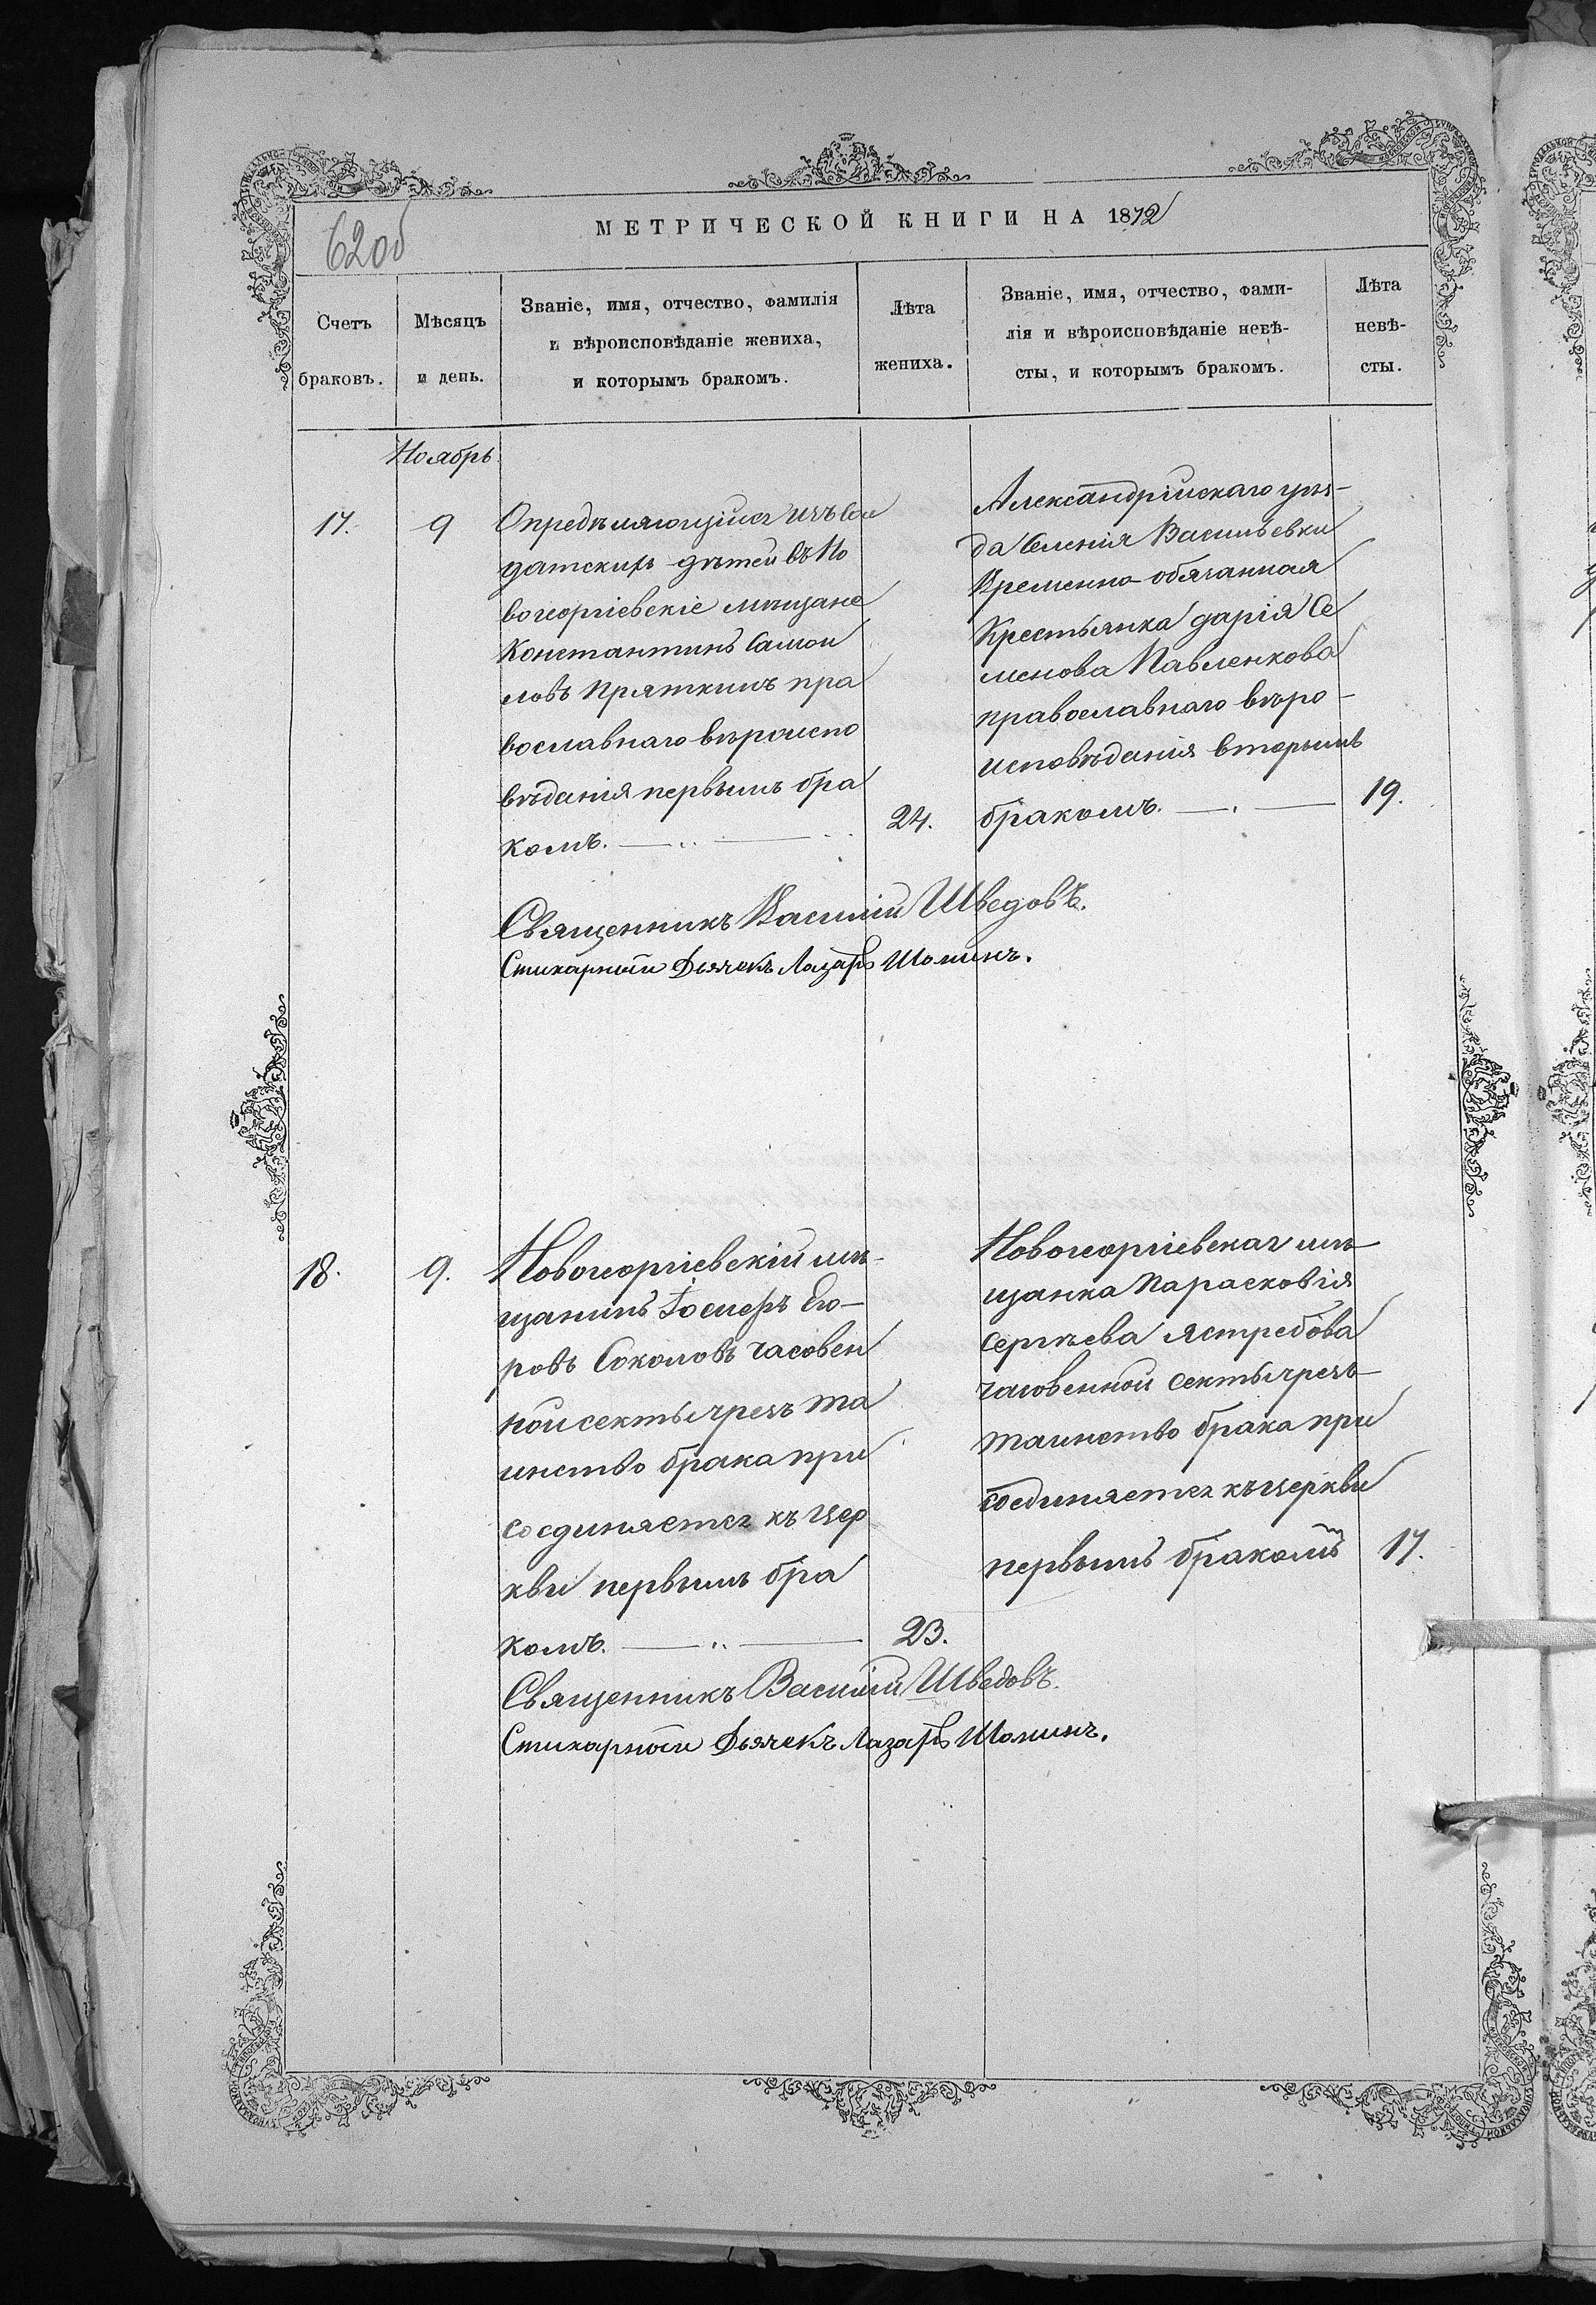 620б
МЕТРИЧЕСКОЙ КНИГИ НА 1872
Счетъ браковъ.
Мѣсяцъ и день.
Званіе, имя, отчество, фамилія
и вѣроисповѣданіе жениха,
и которымъ бракомъ.
Лѣта жениха.
Званіе, имя, отчество, фами-
лія и вѣроисповѣданіе невѣ-
сты, и которымъ бракомъ.
Лѣта невѣ-
сты.
Ноябрь
17. 9
Опредѣляющійся изъ сол
датскихъ дѣтей въ Но
вогеоргіевскіе мѣщане
Константинъ Самои
ловъ Пряткинъ пра
вославнаго вѣроиспо
вѣданія первымъ бра
комъ. 24.
Александрійскаго уѣз-
да Селенія Васильевки
Временно-обязанная
Крестьянка Дарія Се
менова Павленкова
православнаго вѣро-
исповѣданія вторымъ
бракомъ. 19.
Священникъ Василій Шведовъ.
Стихарный Дьячекъ Лазарь Шоминъ.
18. 9.
Новогеоргіевскій мѣ-
щанинъ Іосифъ Его-
ровъ Соколовъ часовен
ной секты чрезъ та
инство брака при
соединяется къ цер
кви первымъ бра
комъ. 23.
Новогеоргіевская мѣ-
щанка Парасковія
Сергѣева Ястребова
часовенной секты чрезъ
таинство брака при
соединяется къ церкви
первымъ бракомъ 17.
Священникъ Василій Шведовъ.
Стихарный Дьячекъ Лазарь Шоминъ.